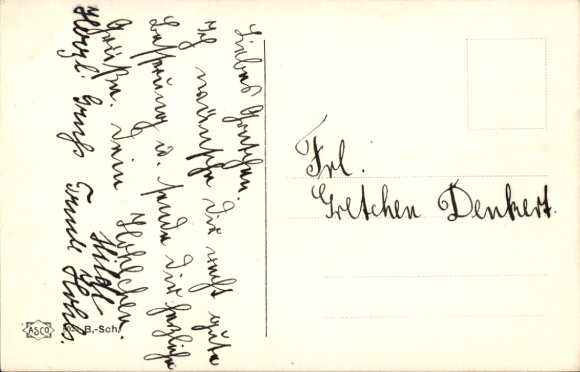 Liebes Gretchen.
Ich wünsche Dir recht gute
Besserung u. sende Dir herzliche
Grüße. Dein
Hilde
Herzl. Gruß Tante
Frl.
Gretchen Denkert.
ASCO B.-Sch.